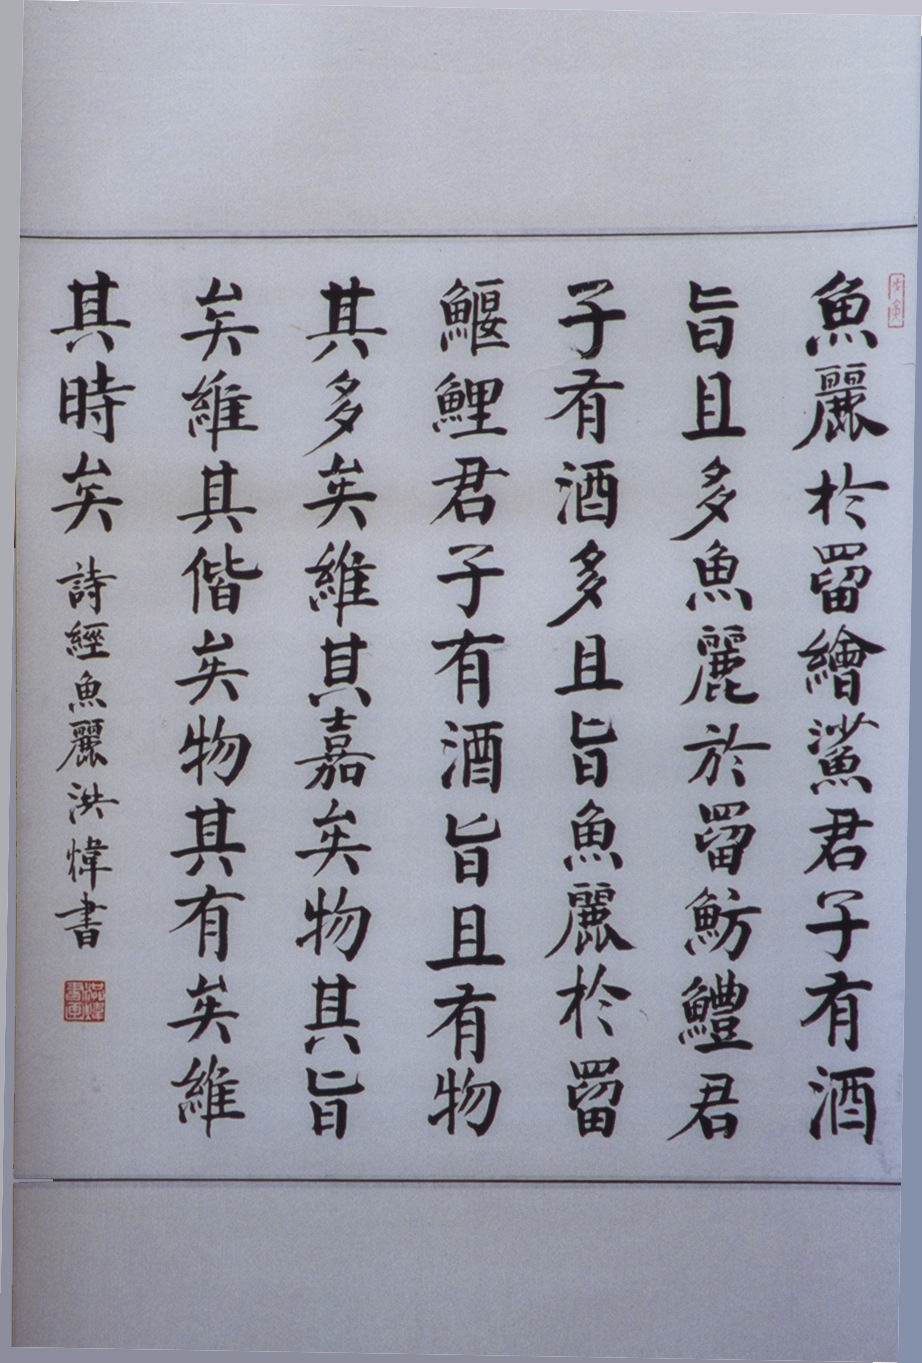 魚麗於罶繪鯊君子有酒
旨且多魚麗於罶魴鱧君
子有酒多且旨魚麗於罶
鰋鯉君子有酒旨且有物
其多矣維其嘉矣物其旨
矣維其偕矣物其有矣維
其時矣
詩經魚麗洪煒書